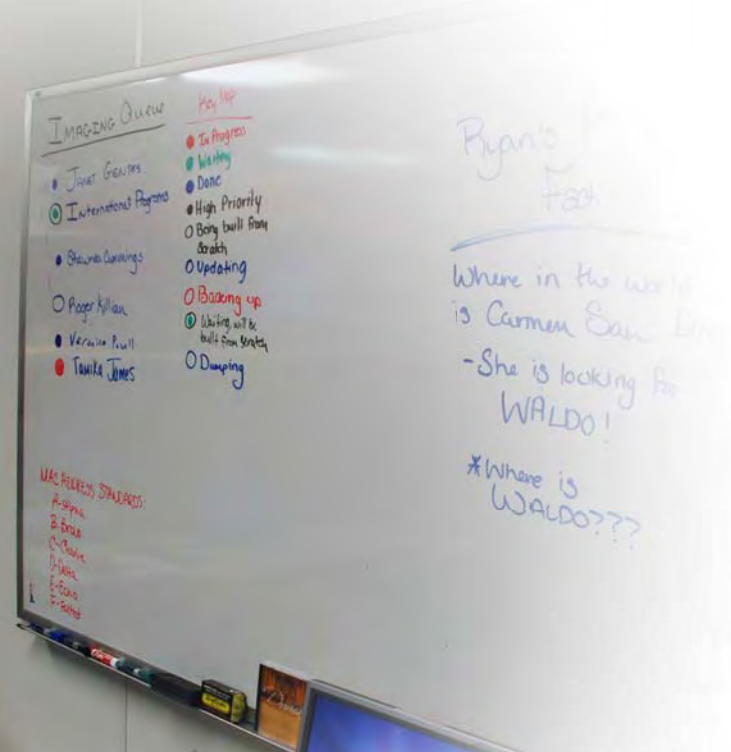 IMAGING QUEUE
JANET GENTRY
International Programs
Shawnda Cummings
Roger Killian
Veronica Powell
Tamika James
Key Map
In Progress
Waiting
Done
High Priority
Being built from
Scratch
Updating
Backing up
Waiting, will be
built from scratch
Dumping
MAC ADDRESS STANDARDS:
A-Alpha
B-Bravo
C-Charlie
D-Delta
E-Echo
F-Foxtrot
Ryan's
Fact
Where in the world
is Carmen San
-She is looking for
WALDO!
*Where is
WALDO???